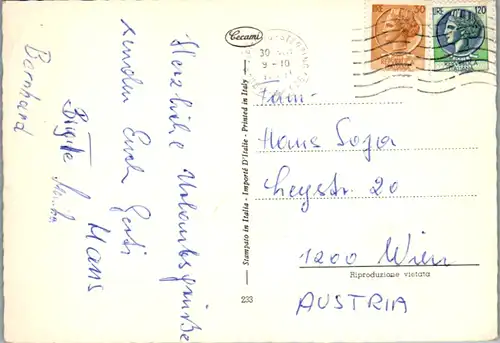 Herzliche Urlaubsgrüße
senden Euch Gerti
Hans
Brigitte
Bernhard
Cecami
Stampato in Italia - Importé D'Italie - Printed in Italy
233
30
9-10
LIRE 50
LIRE 120
Fam.
Hans
Leystr. 20
1200 Wien
Riproduzione vietata
AUSTRIA